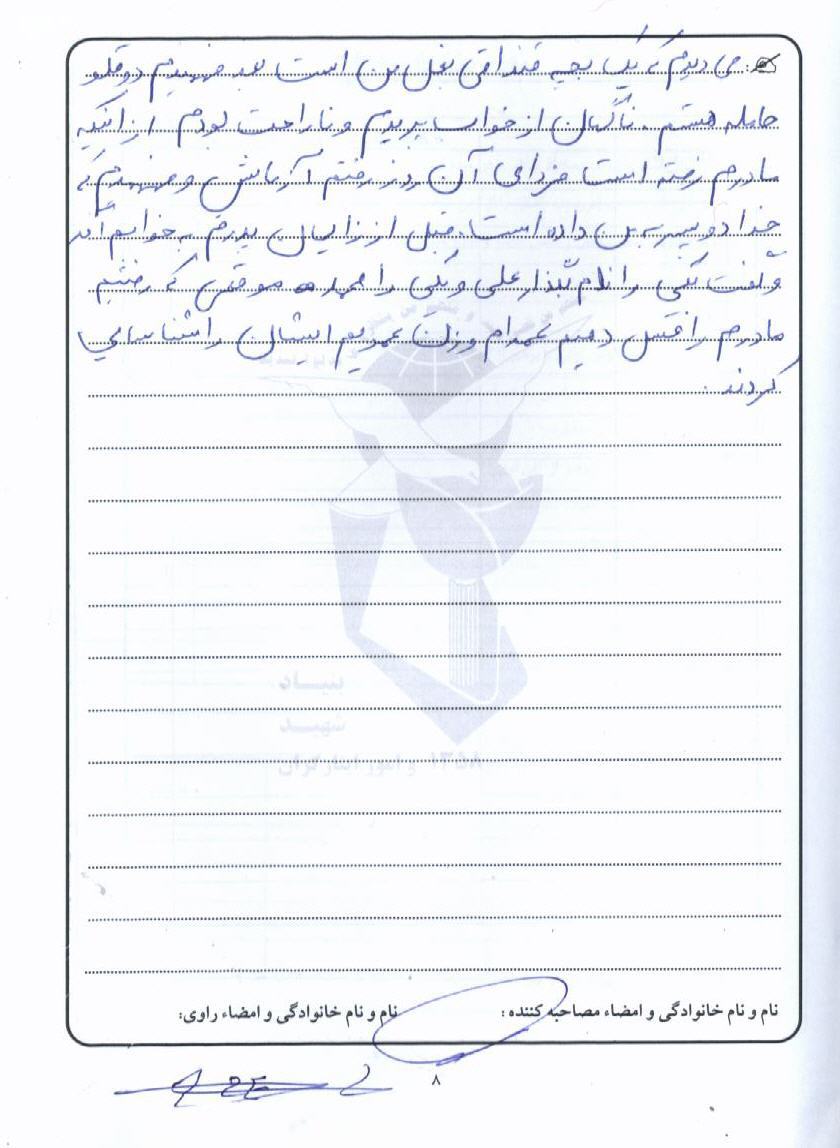 می دیدم که یک بچه قنداقی بغل من است بعد فهمیدم دوقلو
حامله هستم. ناگهان از خواب پریدم و ناراحت بودم از اینکه
مادرم رفته است فردای آن روز رفتم آزمایش و فهمیدم که
خدا دو پسر به من داده است. قبل از زایمان پدرم به خوابم آمد
و گفت یکی را نام بگذار علی و یکی را موقعی که رفتیم
مادرم را غسل دهیم عمه‌ام و زن عمویم ایشان را شناسایی
کردند.
بنیاد
شهید
و امور ایثارگران ۱۳۵۸
نام و نام خانوادگی و امضاء مصاحبه کننده : نام و نام خانوادگی و امضاء راوی:
۸